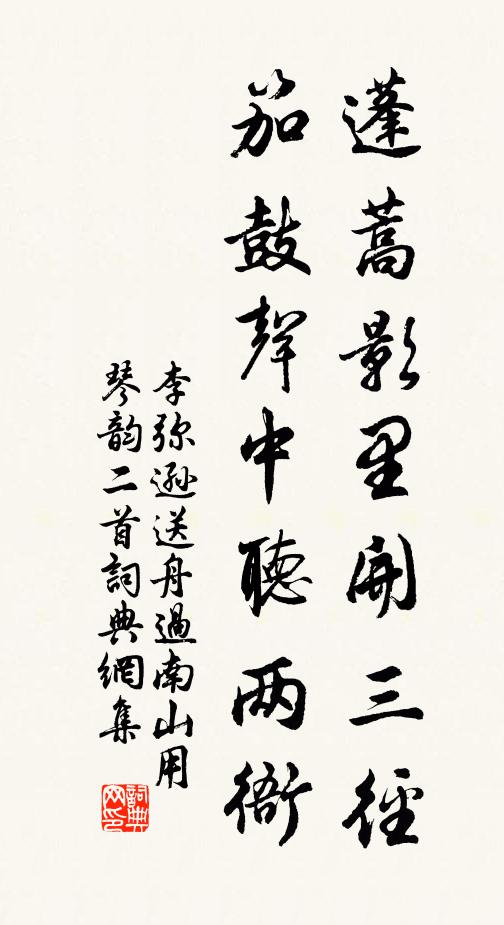 蓬蒿影里開三徑
笳鼓聲中聽兩衙
李弥遜送舟過南山用
琴韵二首詞典網集
詞典
网印